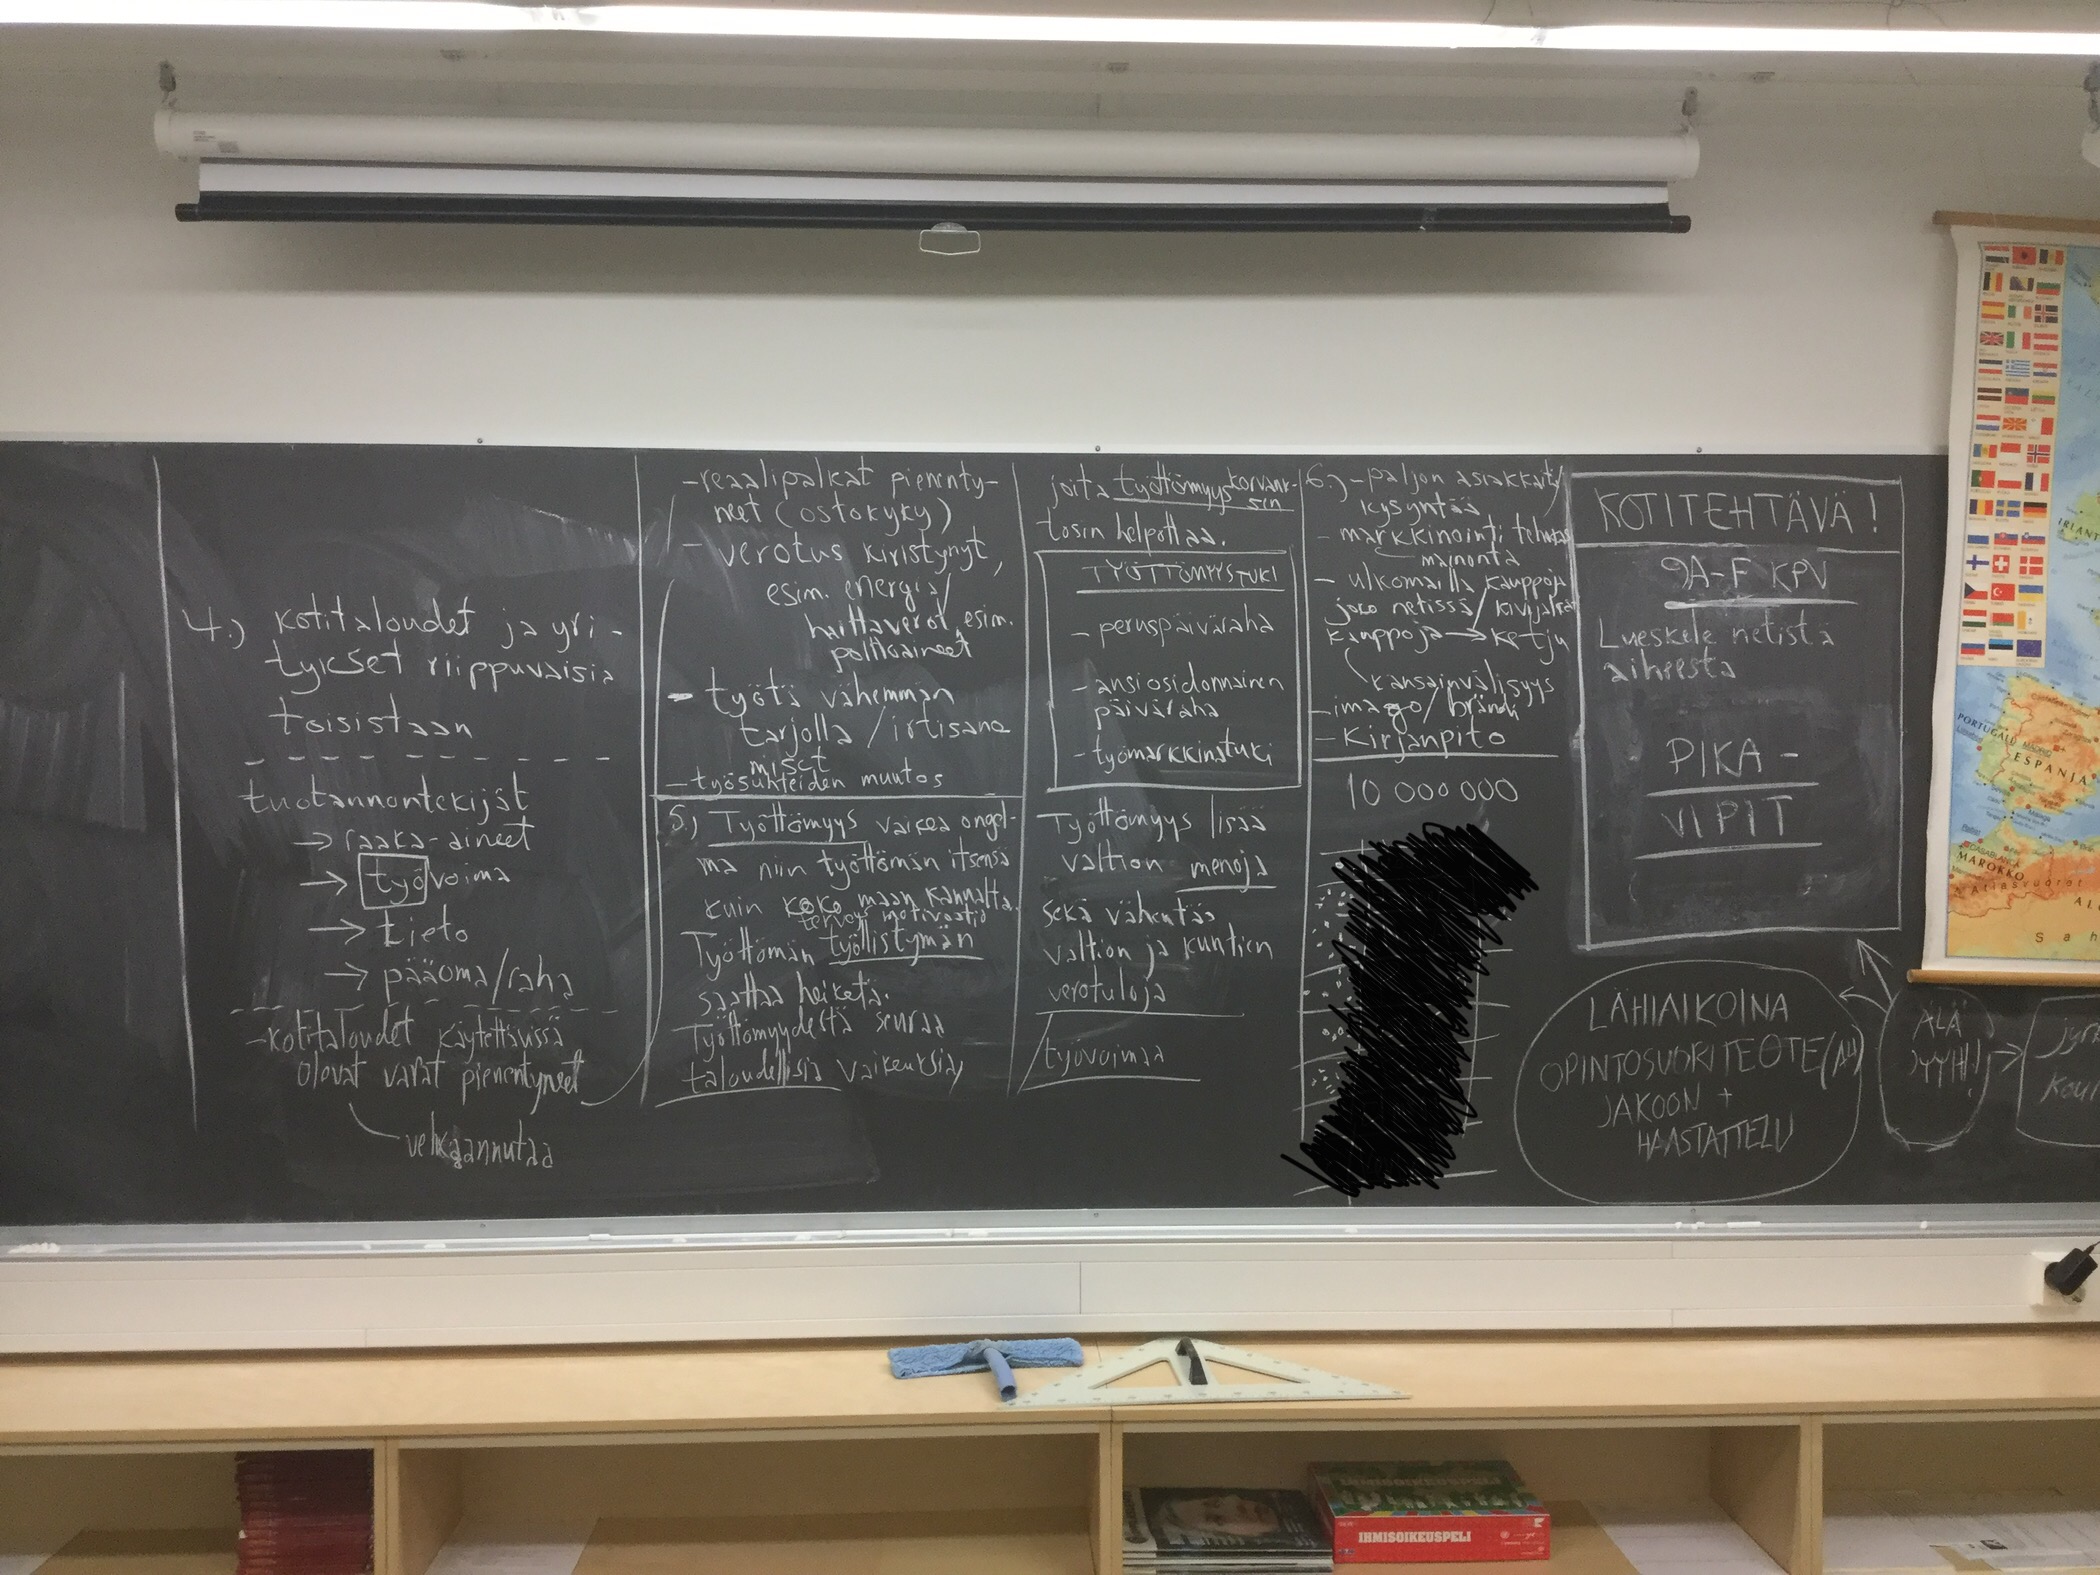 4.) kotitaloudet ja yri-
tykset riippuvaisia
toisistaan
tuotannontekijät
→ raaka-aineet
→ työvoima
→ tieto
→ pääoma/raha
-kotitaloudet käytettävissä
olevat varat pienentyneet
velkaannutaa
-reaalipalkat pienenty-
neet (ostokyky)
- verotus kiristynyt,
esim. energia/
haittaverot, esim.
polttoaineet
- työtä vähemmän
tarjolla / irtisano
miset
-työsuhteiden muutos
5.) Työttömyys vaikea ongel-
ma niin työttömän itsensä
kuin koko maan kannalta.
terveys motivaatio
Työttömän työllistymän
saattaa heiketä.
Työttömyydestä seuraa
taloudellisia vaikeuksia,
joita työttömyyskorvauk-
sin
tosin helpottaa.
TYÖTTÖMYYSTUKI
- peruspäiväraha
- ansiosidonnainen
päiväraha
-työmarkkinatuki
Työttömyys lisää
valtion menoja
sekä vähentää
valtion ja kuntien
verotuloja
työvoimaa
6.) -paljon asiakkaita/
kysyntää
- markkinointi
mainonta
- ulkomailla kauppoja
joko netissä/kivijalka
kauppoja → ketju
kansainvälisyys
-imago/brändi
-Kirjanpito
10 000 000
KOTITEHTÄVÄ!
9A-F KPV
Lueskele netistä
aiheesta
PIKA-
VIPIT
LÄHIAIKOINA
OPINTOSUORITEOTE(A4)
JAKOON +
HAASTATTELU
ÄLÄ
PYYHI!
IRLANT
PORTUGALI
MADRID
ESPANJA
CASABLANCA
MAROKKO
Atlasvuoret
Sah
IHMISOIKEUSPELI